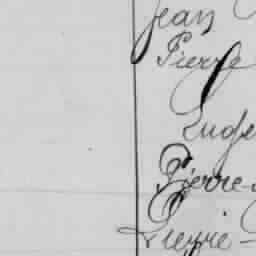 Jean
Pierre
Euge
Pierre-
Pierre-